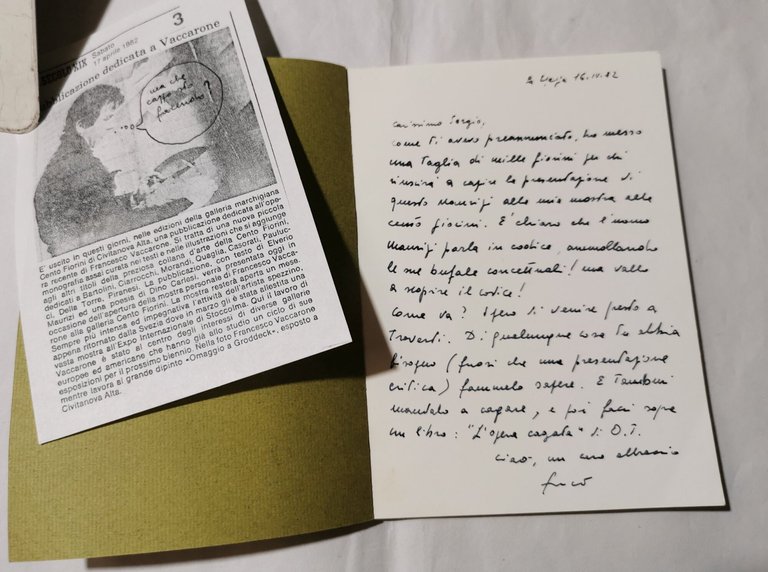 3
SECOLO XIX Sabato
17 aprile 1982
bblicazione dedicata a Vaccarone
ma che
cazzo sto
facendo?
E' uscito in questi giorni, nelle edizioni della galleria marchigiana
Cento Fiorini di Civitanova Alta, una pubblicazione dedicata all'ope-
ra recente di Francesco Vaccarone. Si tratta di una nuova piccola
monografia assai curata nei testi e nelle illustrazioni che si aggiunge
agli altri titoli della preziosa collana d'arte della Cento Fiorini,
dedicati a Bartolini, Ciarrocchi, Morandi, Quaglia, Casorati, Pauluc-
ci, Della Torre, Piranesi. La pubblicazione, con testo di Elverio
Maurizi ed una poesia di Dino Carlesi, verrà presentata oggi in
occasione dell'apertura della mostra personale di Francesco Vacca-
rone alla galleria Cento Fiorini. La mostra resterà aperta un mese.
Sempre più intensa ed impegnativa l'attività dell'artista spezzino,
appena ritornato dalla Svezia dove in marzo gli è stata allestita una
vasta mostra all'Expo Internazionale di Stoccolma. Qui il lavoro di
Vaccarone è stato al centro degli interessi di diverse gallerie
europee ed americane che hanno già allo studio un ciclo di sue
esposizioni per il prossimo biennio. Nella foto Francesco Vaccarone
mentre lavora al grande dipinto «Omaggio a Groddeck», esposto a
Civitanova Alta.
16.IV.82
Carissimo Sergio,
come ti avevo preannunciato, ho messo
una taglia di mille fiorini per chi
riuscirà a capire la presentazione di
questo Maurizi alla mia mostra alla
cento fiorini. E' chiaro che l'uomo
Maurizi parla in codice,
le mie bufale concettuali! ma vallo
a scoprire il codice!
Come va? Spero di venire presto a
trovarti. Di qualunque cosa tu abbia
bisogno (fuori che una presentazione
critica) fammelo sapere. E
mandalo a cagare, e poi facci sopra
un libro: "L'opera cagata" di O.T.
Ciao, un caro abbraccio